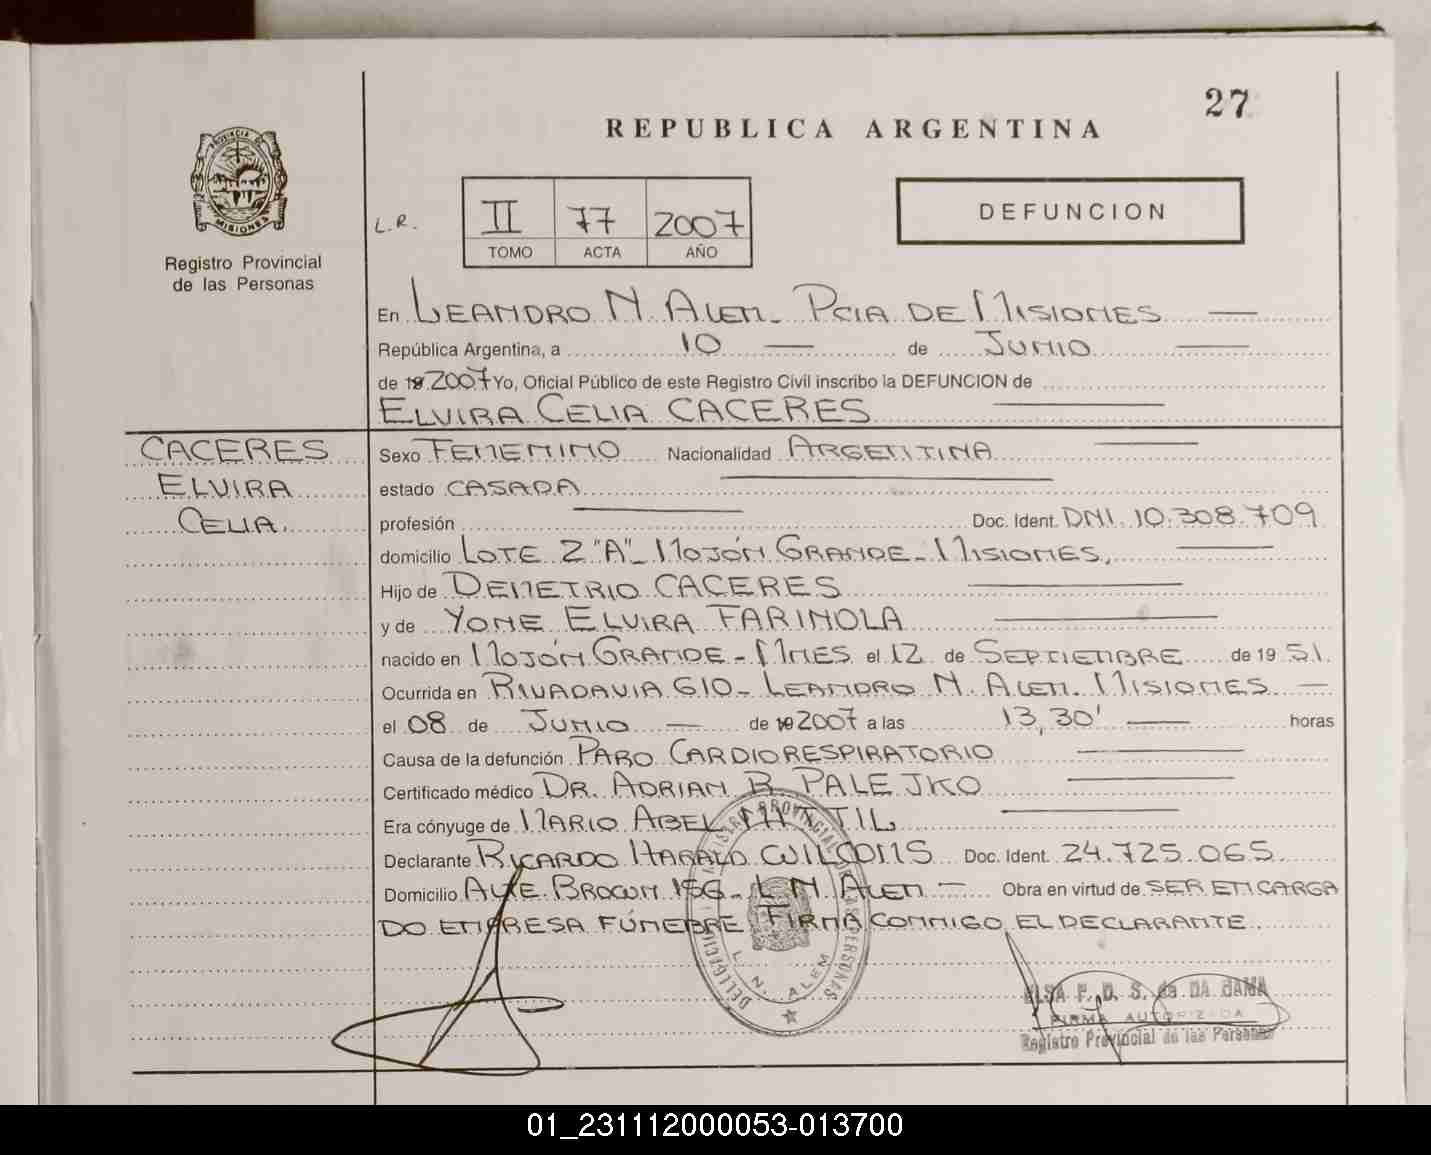 27
REPUBLICA ARGENTINA
PROVINCIA DE MISIONES
Registro Provincial
de las Personas
L.R. II 77 2007
TOMO ACTA AÑO
DEFUNCION
En LEANDRO N. ALEM - PCIA DE MISIONES
República Argentina, a 10 de JUNIO
de 19 2007 Yo, Oficial Público de este Registro Civil inscribo la DEFUNCION de
ELVIRA CELIA CACERES
CACERES
ELVIRA
CELIA.
Sexo FEMENINO Nacionalidad ARGENTINA
estado CASADA
profesión Doc. Ident. DNI. 10.308.709
domicilio LOTE 2 "A" - MOJÓN GRANDE - MISIONES.
Hijo de DEMETRIO CACERES
y de YONE ELVIRA FARINOLA
nacido en MOJÓN GRANDE - MNES el 12 de SEPTIEMBRE de 19 51.
Ocurrida en RIVADAVIA 610 - LEANDRO N. ALEM. MISIONES
el 08 de JUNIO de 19 2007 a las 13,30' horas
Causa de la defunción PARO CARDIORESPIRATORIO
Certificado médico DR. ADRIAN R. PALEJKO
Era cónyuge de MARIO ABEL
Declarante RICARDO HARALD Doc. Ident. 24.725.065
Domicilio ALTE. BROWN 156 - L. N. ALEM - Obra en virtud de SER ENCARGA
DO EMPRESA FÚNEBRE FIRMA CONMIGO EL DECLARANTE.
L. N. ALEM
ELSA F. D. S. de DA GAMA
FIRMA AUTORIZADA
Registro Provincial de las Personas
01_231112000053-013700